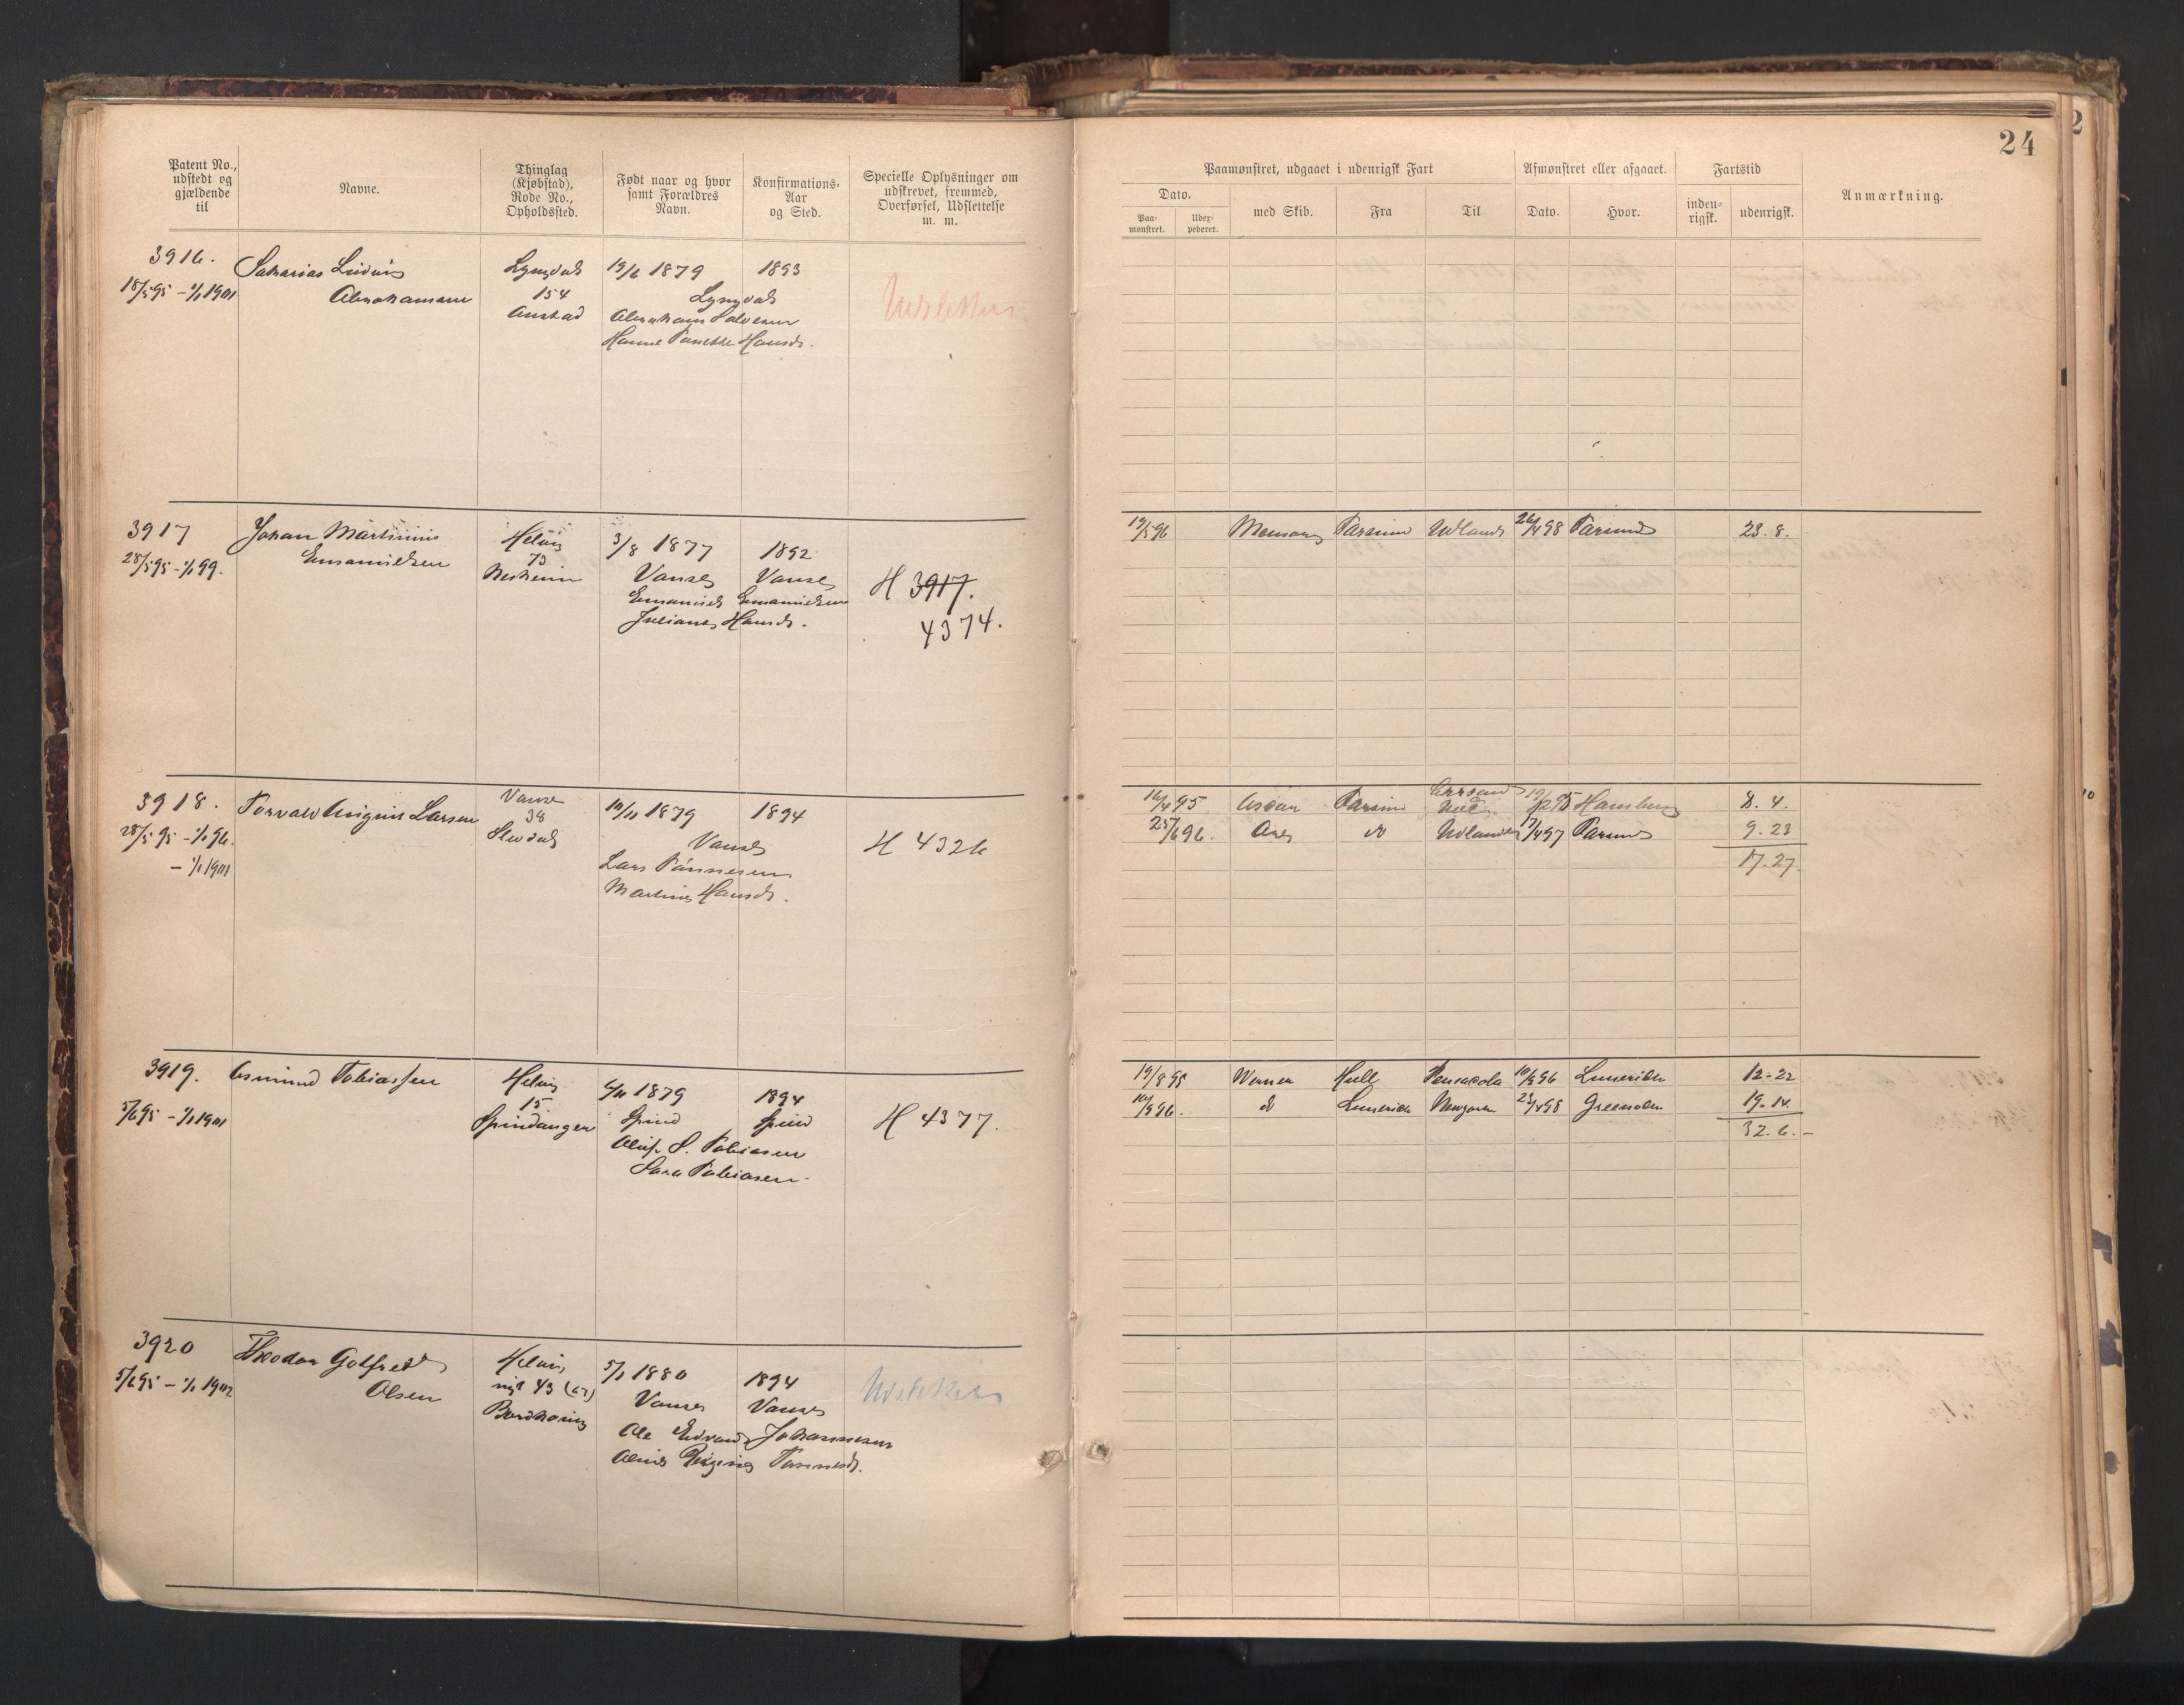 24
Patent No., udstedt og gjældende til
Navne.
Thinglag (Kjøbstad), Rode No., Opholdssted.
Født naar og hvor samt Forældres Navn.
Konfirmations-Aar og Sted.
Specielle Oplysninger om udskrevet, fremmed, Overførsel, Udslettelse m. m.
Paamønstret, udgaaet i udenrigsk Fart
Dato.
Paa-mønstret.
Udex-pederet.
med Skib.
Fra
Til
Afmønstret eller afgaaet.
Dato.
Hvor.
Fartstid
inden-rigsk.
udenrigsk.
Anmærkning.
3916.
18/5 95 - 1/1 1901
Sakarias Ludvig
Abrahamsen
Lyngdal
154
Austad
19/6 1879
1893
Lyngdal
Abraham Salvesen
Hanne Hansd.
Udslettes
3917
28/5 95 - 1/1 99.
Johan Martinius
Emanuelsen
Helvig
73
Nesheim
3/8 1877
1892
Vanse
Vanse
Emanuel Emanuelsen
Juliane Hansd.
H 3917.
4374.
19/5 96
Farsund
Udland
26/4 98
Farsund
23. 8.
3918.
28/5 95 - 1/1 96.
- 1/1 1901
Torvald Larsen
Vanse
38
10/11 1879
1894
Vanse
Lars Tønnesen
Martine Hansd.
H 4326
16/4 95
Oscar
Farsund
Hamburg
8. 4.
25/6 96.
do
Udlandet
7/4 97
Farsund
9. 23
17. 27.
3919.
5/6 95 - 1/1 1901
Asmund Tobiassen
Helvig
15
Spindanger
6/11 1879
1894
Spind
Spind
Oluf S. Tobiasen
Sara Tobiasen
H 4377.
19/8 95
Werner
Hull
Pensacola
10/9 96
12-22
10/9 96.
do
23/4 98
19. 14.
32. 6.-
3920
5/6 95 - 1/1 1902
Theodor Gotfred
Olsen
Helvig
43
5/1 1880
1894
Vanse
Vanse
Ole Edvard Johannesen
Tønnesd.
Udslettes